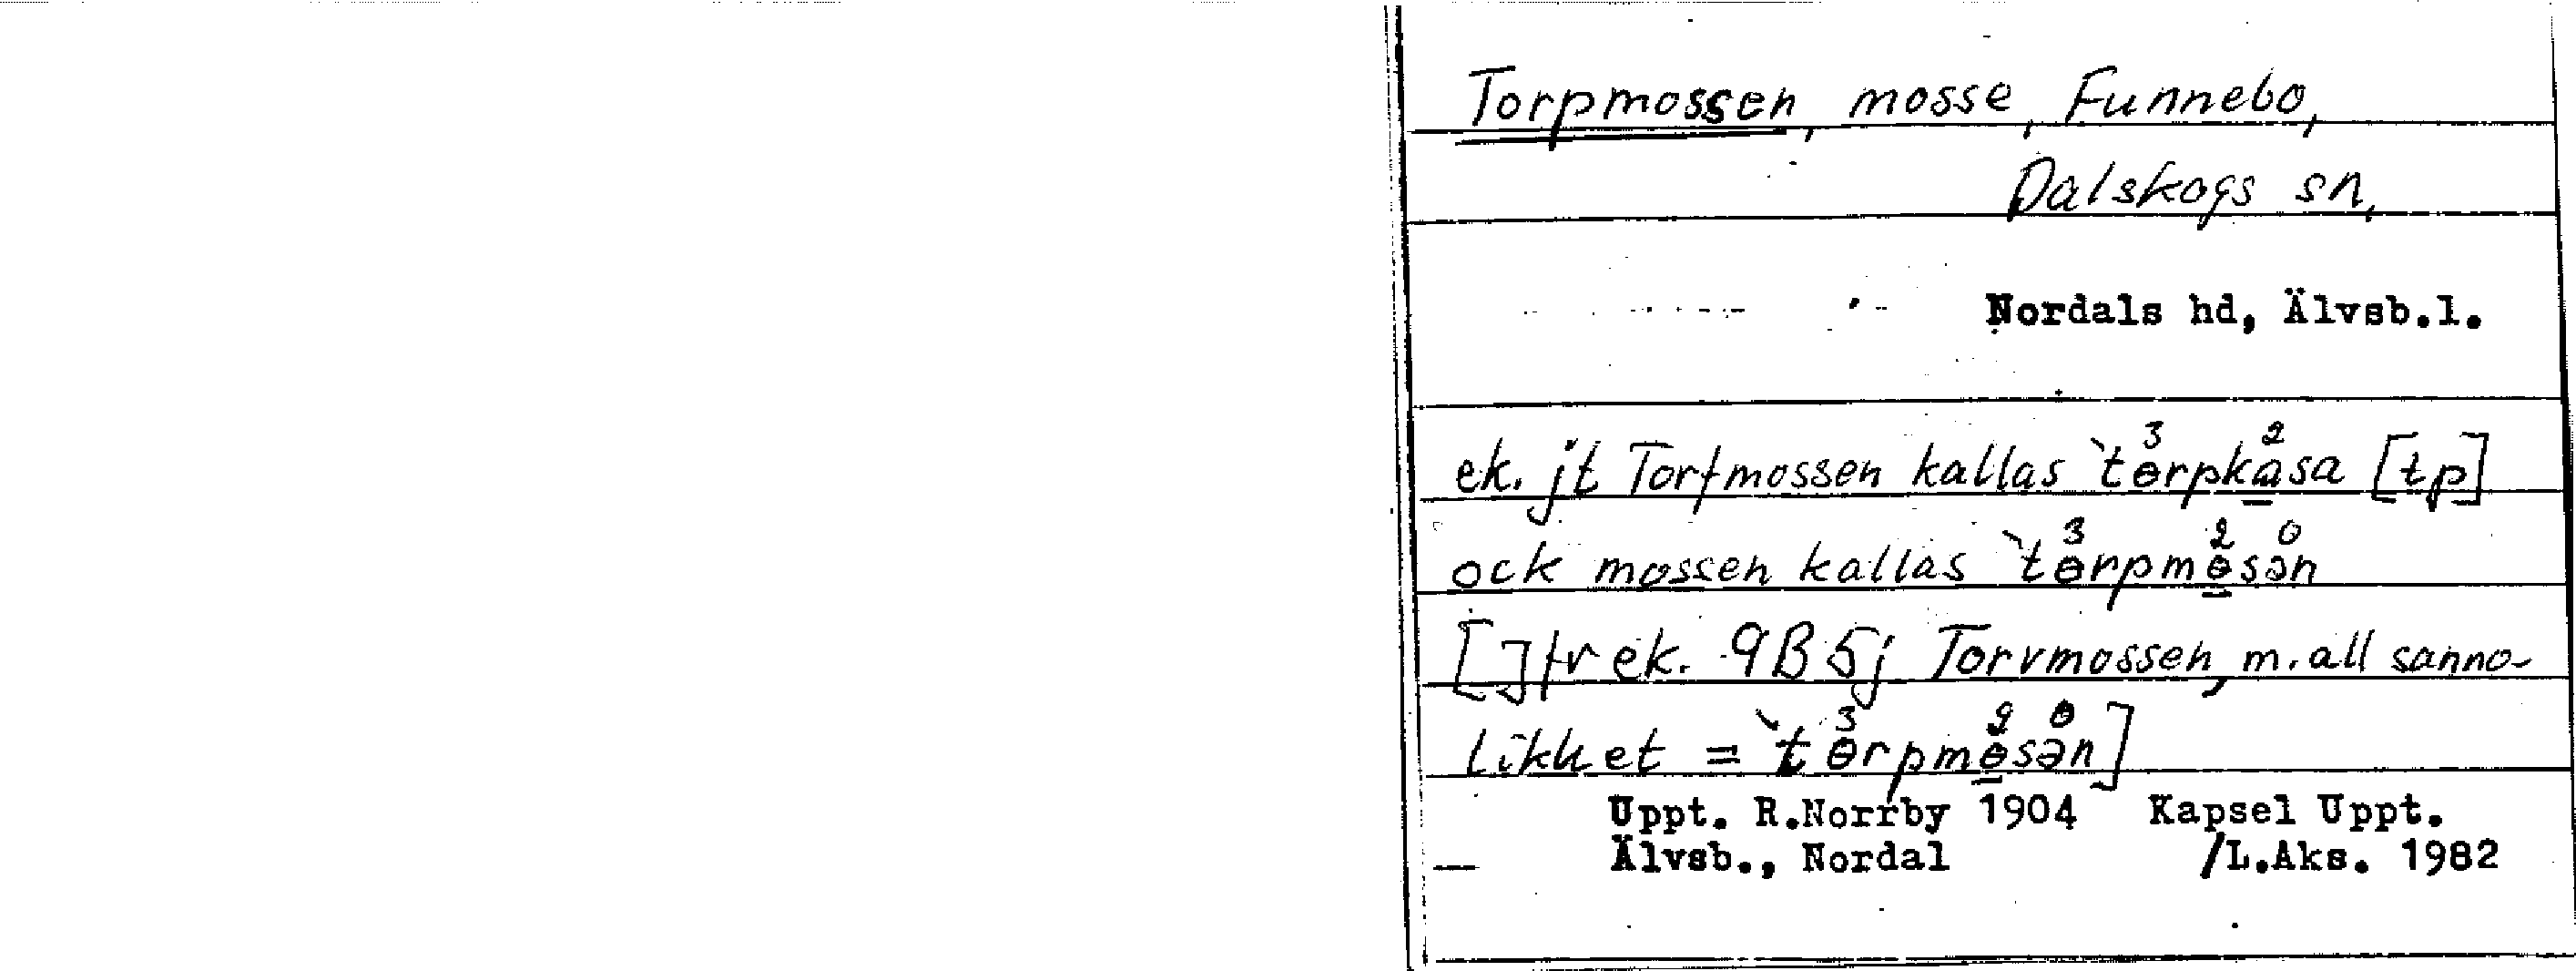 Torpmossen, mosse, Funnebo,
Dalskogs sn,
Nordals hd, Älvsb.l.
ek. jt Torfmossen kallas `tɵ³rpka²sa [tp]
ock mossen kallas `tɵ³rpmɵ²sə⁰n
[Jfr ek. 9B5j Torvmossen, m. all sanno-
likhet = `tɵ³rpmɵ²sə⁰n]
Uppt. R.Norrby 1904 Kapsel Uppt.
Älvsb., Nordal /L.Aks. 1982